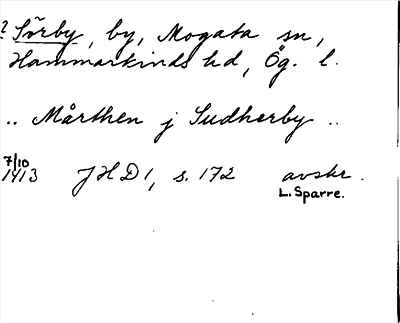 ? Sörby, by, Mogata sn,
Hammarkinds hd, Ög. l.
.. Mårthen j Sudherby ..
7/10
1413 JHD 1, s. 172 avskr.
L. Sparre.